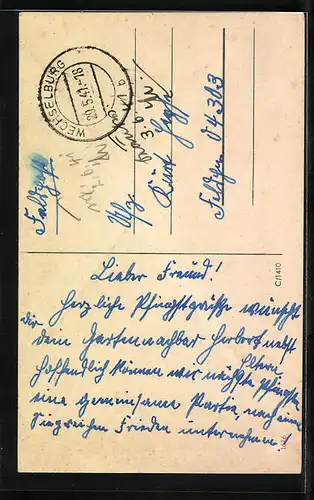 WECHSELBURG
29.5.41.-18
b
Feldpost
Kurt
Feldpnr 04303
Lieber Freund!
Herzliche Pfingstgrüße wünscht
Dir
dein Gartennachbar Herbert nebst
Eltern
Hoffendlich können wir nächste Pfingsten
eine gemeinsame Partie nach einem
Siegreichen Frieden unternehmen!
C/1410